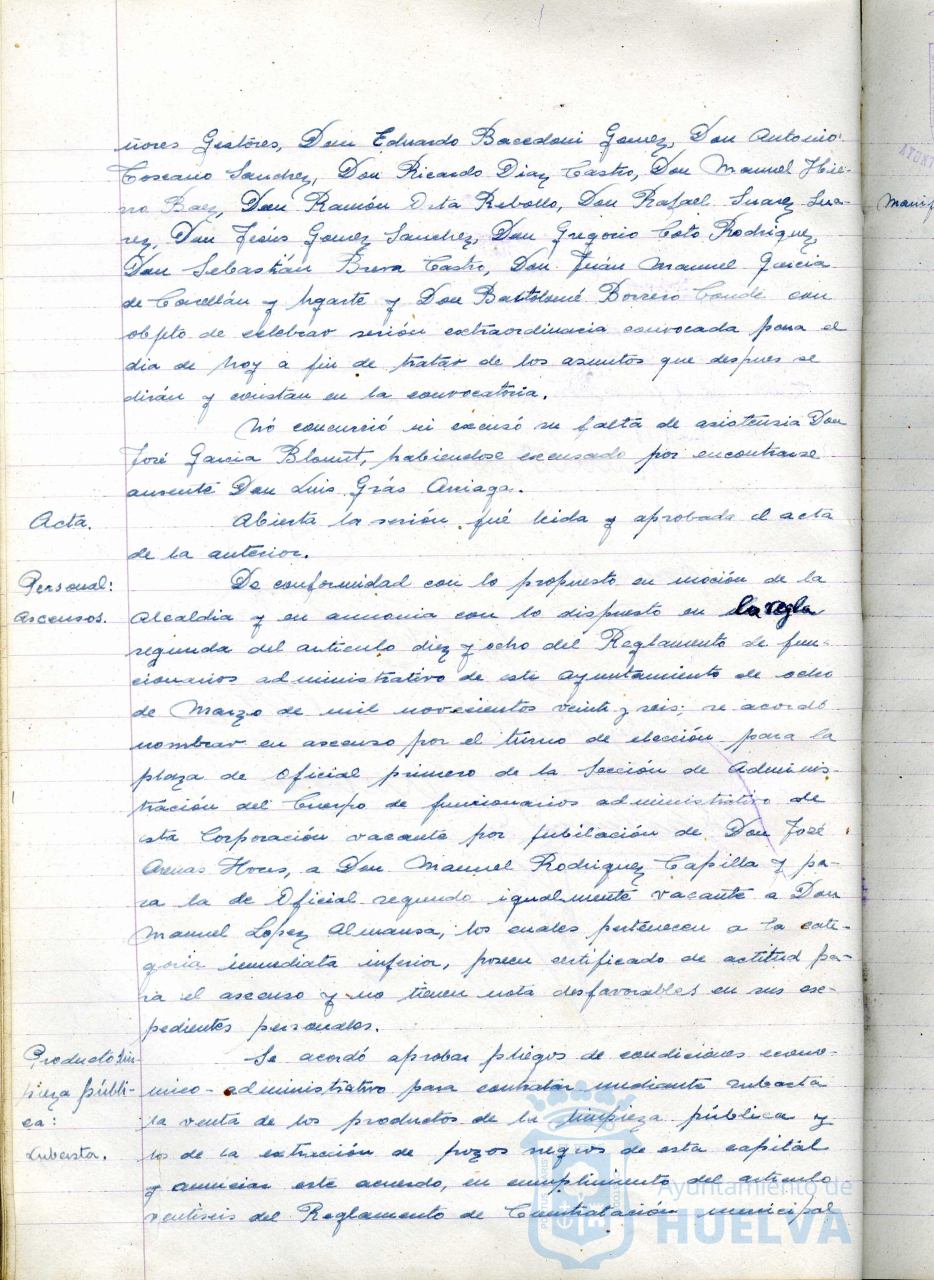 ñores Gestores, Don Eduardo Bacedoni Gomez, Don Antonio
Toscano Sanchez, Don Ricardo Diaz Castro, Don Manuel Hie-
rro Baez, Don Ramón Orta Rebollo, Don Rafael Suarez Sua-
rez, Don Jesús Gomez Sanchez, Don Gregorio Coto Rodriguez,
Don Sebastián Breva Castro, Don Juan Manuel Garcia
de Casellán y Ugarte y Don Bartolomé Borrero Conde con
objeto de celebrar sesión extraordinaria convocada para el
dia de hoy a fin de tratar de los asuntos que despues se
dirán y constan en la convocatoria.
No concurrió ni excusó su falta de asistensia Don
José Garcia Blount, habiendose excusado por encontrarse
ausente Don Luis Grás Arriaga.
Acta.
Abierta la sesión fué leida y aprobada el acta
de la anterior.
Personal:
ascensos.
De conformidad con lo propuesto en moción de la
Alcaldia y en armonia con lo dispuesto en la regla
segunda del articulo diez y ocho del Reglamento de fun-
cionarios administrativo de este Ayuntamiento de ocho
de Marzo de mil novecientos veinte y seis; se acordó
nombrar en ascenso por el turno de elección para la
plaza de Oficial primero de la Sección de Adminis-
tración del Cuerpo de funcionarios administrativo de
esta Corporación vacante por jubilación de Don José
Arenas Hoces, a Don Manuel Rodriguez Capilla y pa-
ra la de Oficial segundo igualmente vacante a Don
Manuel Lopez Almansa, los cuales pertenecen a la cate-
goria inmediata inferior, poseen certificado de actitud pa-
ra el ascenso y no tienen nota desfavorables en sus ex-
pedientes personales.
Producto lim-
pieza públi-
ca:
Subasta.
Se acordó aprobar pliegos de condiciones econo-
mico-administrativo para contratar mediante subasta
la venta de los productos de la limpieza pública y
los de la extracción de pozos negros de esta capital
y anunciar este acuerdo, en cumplimiento del articulo
veintiseis del Reglamento de Contratación municipal
Manif
Ayuntamiento de
HUELVA